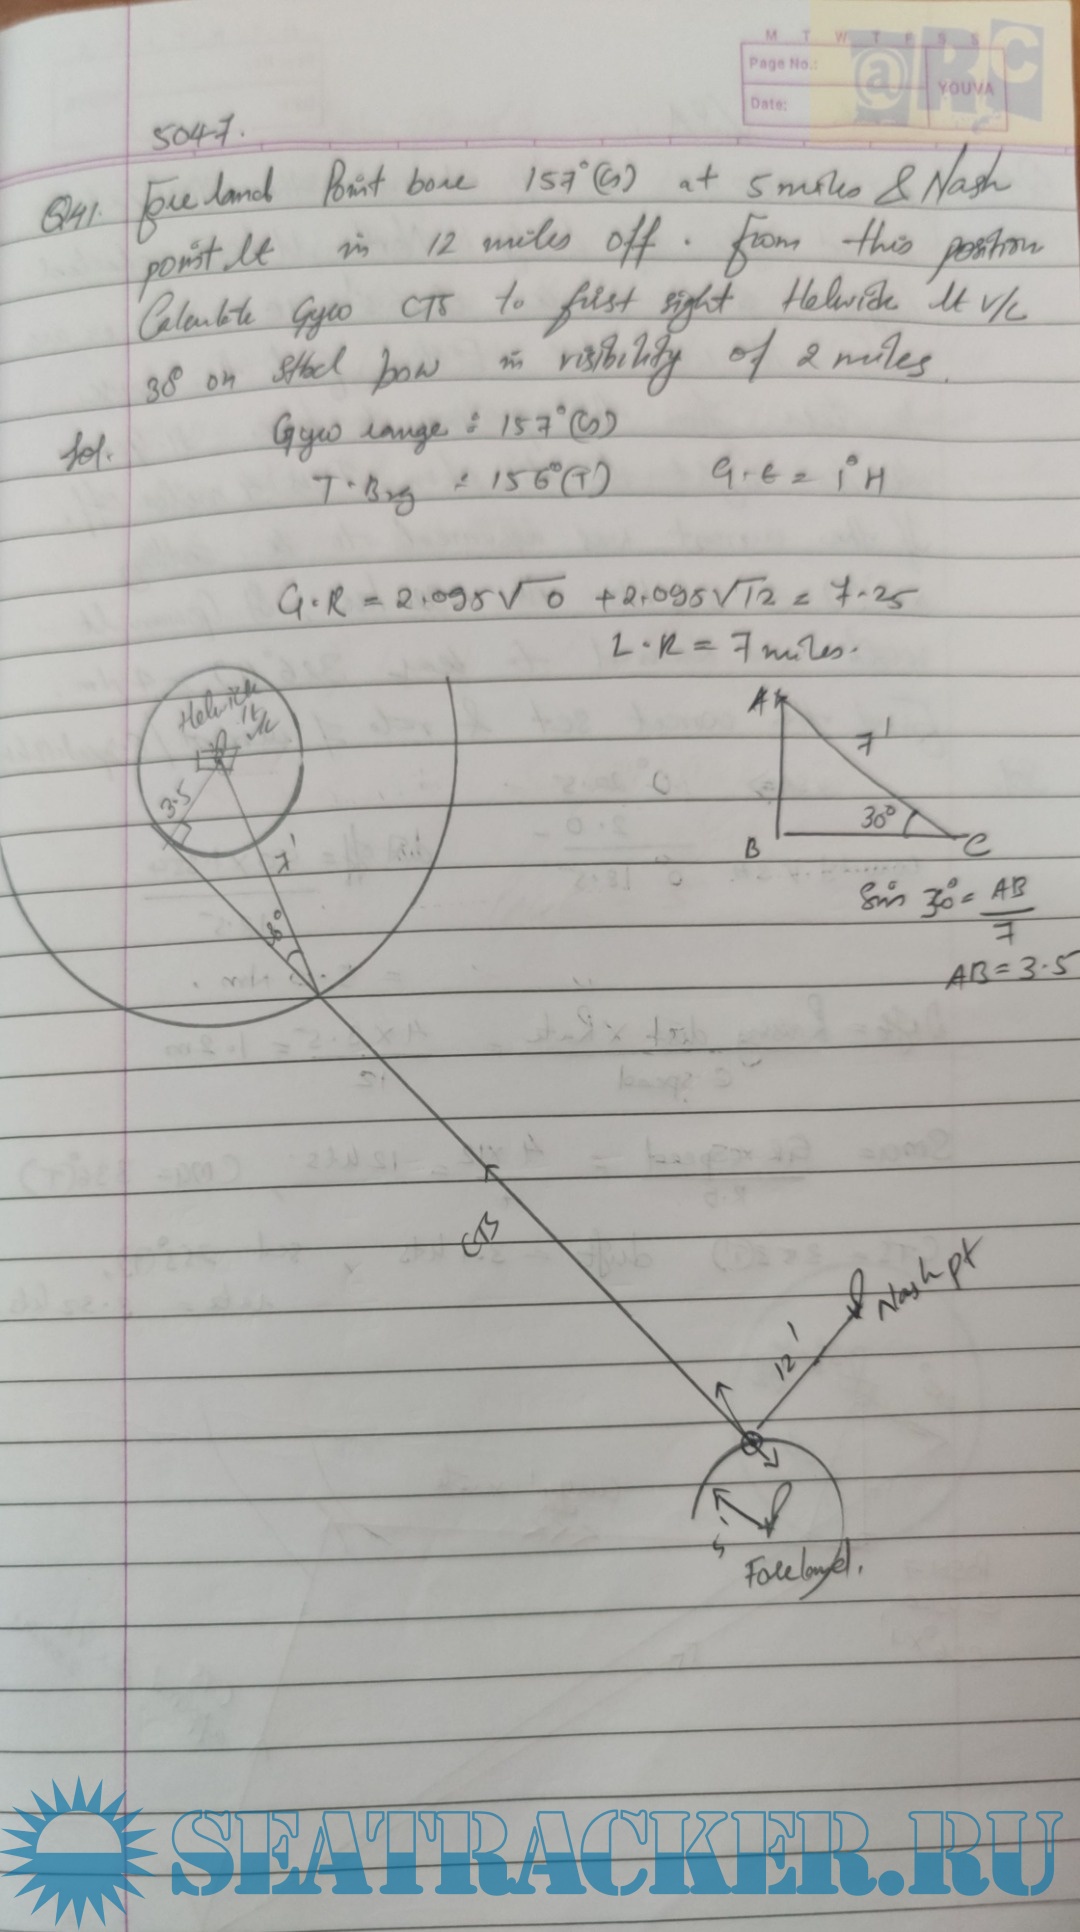 M T W T F S S
Page No.:
Date:
YOUVA
@RC
5047.
Q41. Foreland Point bore 157°(G) at 5 miles & Nash
point lt in 12 miles off. From this position
Calculate Gyro CTS to first sight Helwick lt v/l
30 on stbd bow in visibility of 2 miles.
Sol. Gyro range : 157°(G)
T. Brg : 156°(T) G.E = 1°H
G.R = 2.095√0 + 2.095√12 = 7.25
L.R = 7 miles.
Helwick
lt
v/l
3.5
7'
30°
A
7'
30°
B
C
Sin 30° = AB
7
AB = 3.5
CTS
12'
Nash pt
5'
Foreland.
SEATRACKER.RU